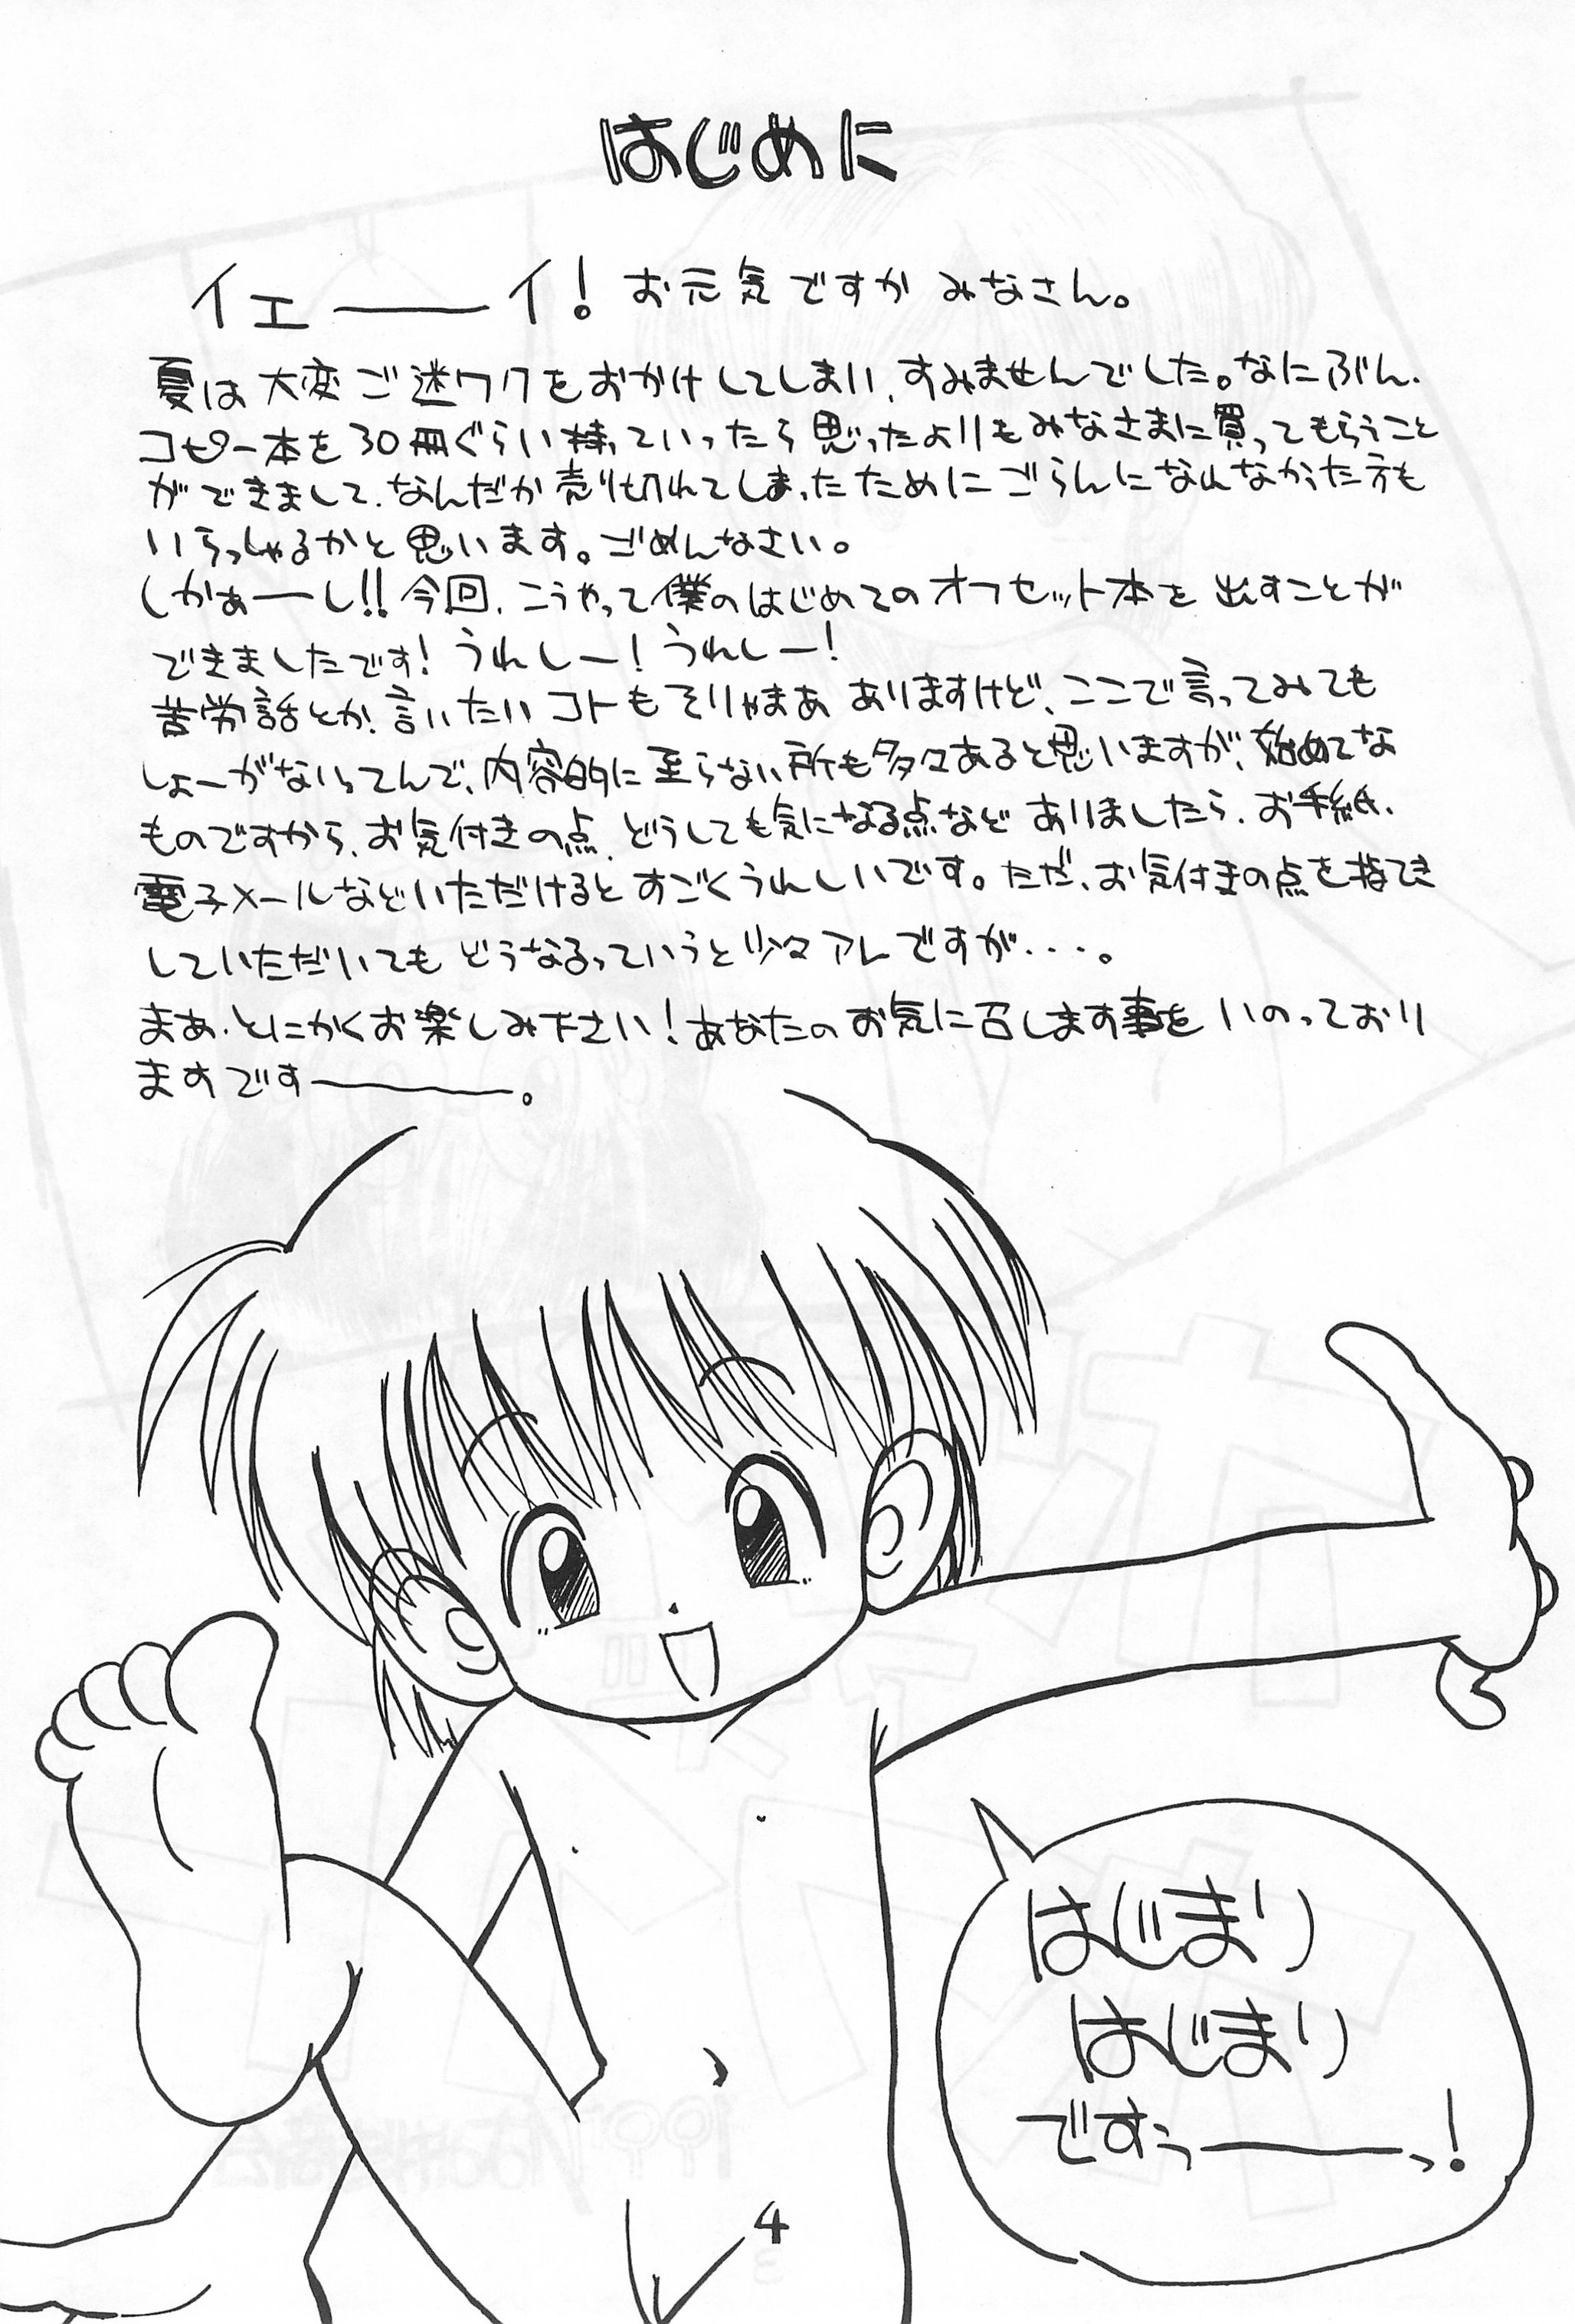 はじめに
イェーーイ! お元気ですか みなさん。
夏は大変ご迷ワクをおかけしてしまい、すみませんでした。なにぶん、
コピー本を30冊ぐらい持っていったら思ったよりもみなさまに買ってもらうこと
ができまして、なんだか売り切れてしまったためにごらんになれなかった方も
いらっしゃるかと思います。ごめんなさい。
しかぁーし!! 今回、こうやって僕のはじめてのオフセット本を出すことが
できましたです! うれしー! うれしー!
苦労話とか、言いたいコトもそりゃまあ ありますけど、ここで言ってみても
しょーがないってんで、内容的に至らない所も多々あると思いますが、始めてな
ものですから、お気付きの点、どうしても気になる点など ありましたら、お手紙、
電子メールなどいただけるとすごくうれしいです。ただ、お気付きの点を指てき
していただいても どうなるっていうと少々アレですが・・・。
まあ、とにかくお楽しみ下さい! あなたのお気に召します事を いのっており
ますですーーー。
はじまり
はじまり
ですぅーーーっ!
4